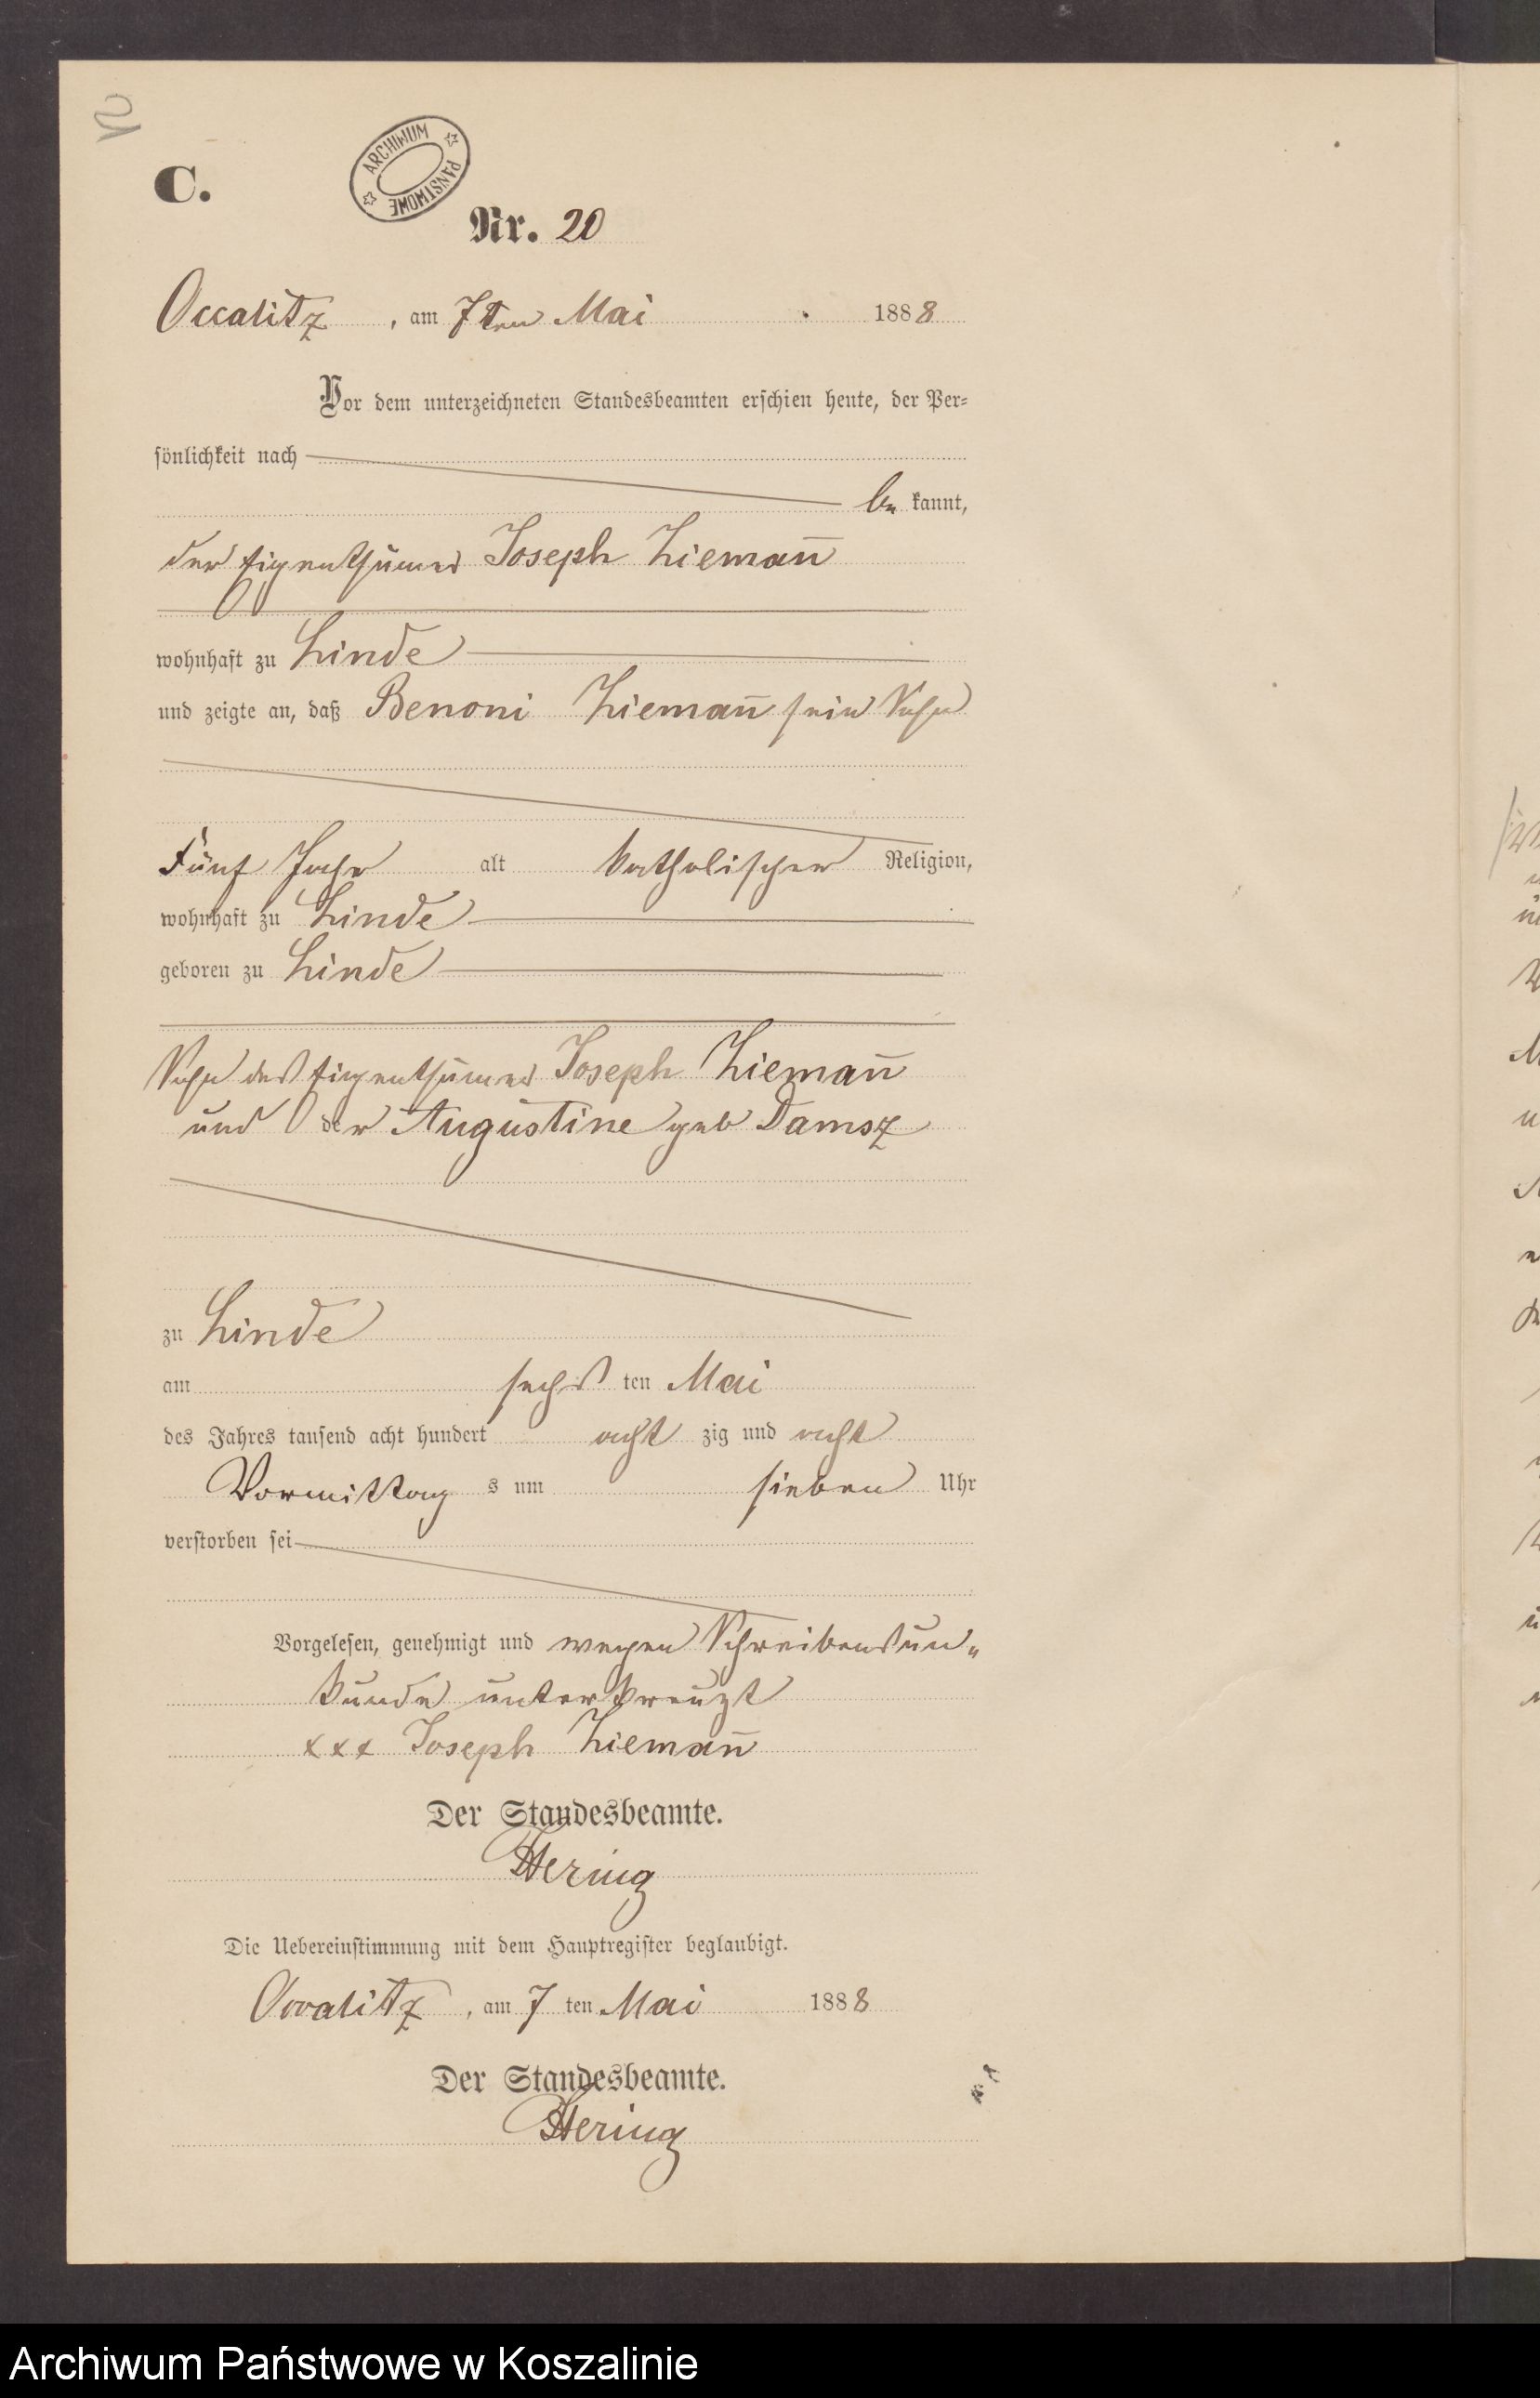 C.
ARCHIWUM PAŃSTWOWE
Nr. 20
Occalitz, am 7ten Mai 1888
Vor dem unterzeichneten Standesbeamten erschien heute, der Per-
sönlichkeit nach
be kannt,
der Eigenthümer Joseph Ziemañ
wohnhaft zu Linde
und zeigte an, daß Benoni Ziemañ sein Sohn
Fünf Jahr alt katholischer Religion,
wohnhaft zu Linde
geboren zu Linde
Sohn des Eigenthümer Joseph Ziemañ
und der Augustine geb Damsz
zu Linde
am sechs ten Mai
des Jahres tausend acht hundert acht zig und acht
Vormittag s um sieben Uhr
verstorben sei
Vorgelesen, genehmigt und wegen Schreibensun„
kunde unterkreuzt
xxx Joseph Ziemañ
Der Standesbeamte.
Hering
Die Uebereinstimmung mit dem Hauptregister beglaubigt.
Occalitz, am 7 ten Mai 1888
Der Standesbeamte.
Hering
Archiwum Państwowe w Koszalinie